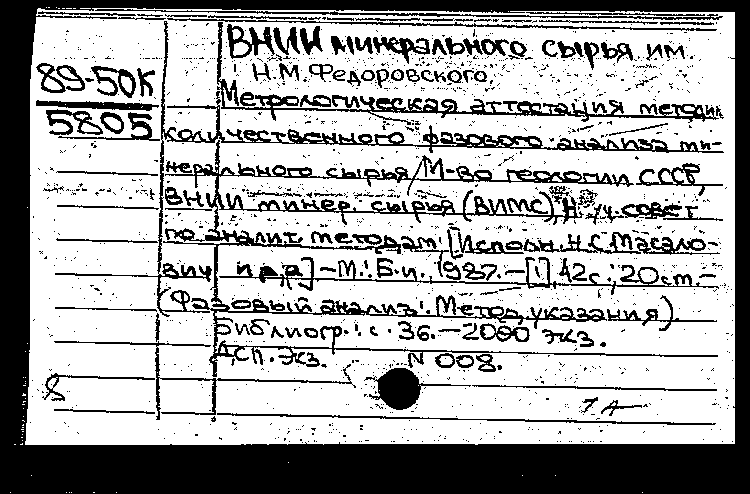 ВНИИ минерального сырья им.
Н.М.Федоровского.
89-50К
5805
Метрологическая аттестация методик
количественного фазового анализа ми-
нерального сырья/М-во геологии СССР,
ВНИИ минер. сырья (ВИМС), Н уч. совет
по аналит. методам; [Исполн. Н.С. Масало-
вич и др.] - М.: Б.и., 1987. - [1], 42с.; 20 см. -
(Фазовый анализ: Метод. указания).
Библиогр.: с. 36. - 2000 экз.
ДСП. Экз. N 008.
8